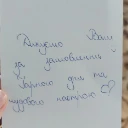 Дякуємо Вам
за замовлення
Гарного дня та
чудового настрою